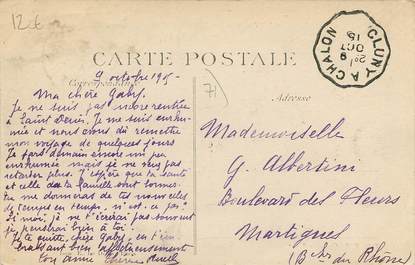 12 €
CARTE POSTALE
CLUNY A CHALON
2º
9
OCT
15
9 octobre 1915 -
Correspondance
Adresse
71
Ma chère Gaby.
Je ne suis pas encore rentrée
à Saint Denis. Je me suis enrhu-
mée et nous avons dû remettre
mon voyage de quelques jours
Je pars demain encore un peu
enrhumée mais je ne veux pas
retarder plus. J'espère que ta santé
et celle de ta famille sont bonnes.
tu me donneras de tes nouvelles
de temps en temps, n'est-ce pas?
Si moi, je ne t'écrirai pas souvent
je penserai bien à toi.
Je te quitte, chère Gaby, en t'em-
brassant bien affectueusement
Ton amie
Mademoiselle
G. Albertini
Boulevard des Fleurs
Martigues
(B-ches du Rhône)